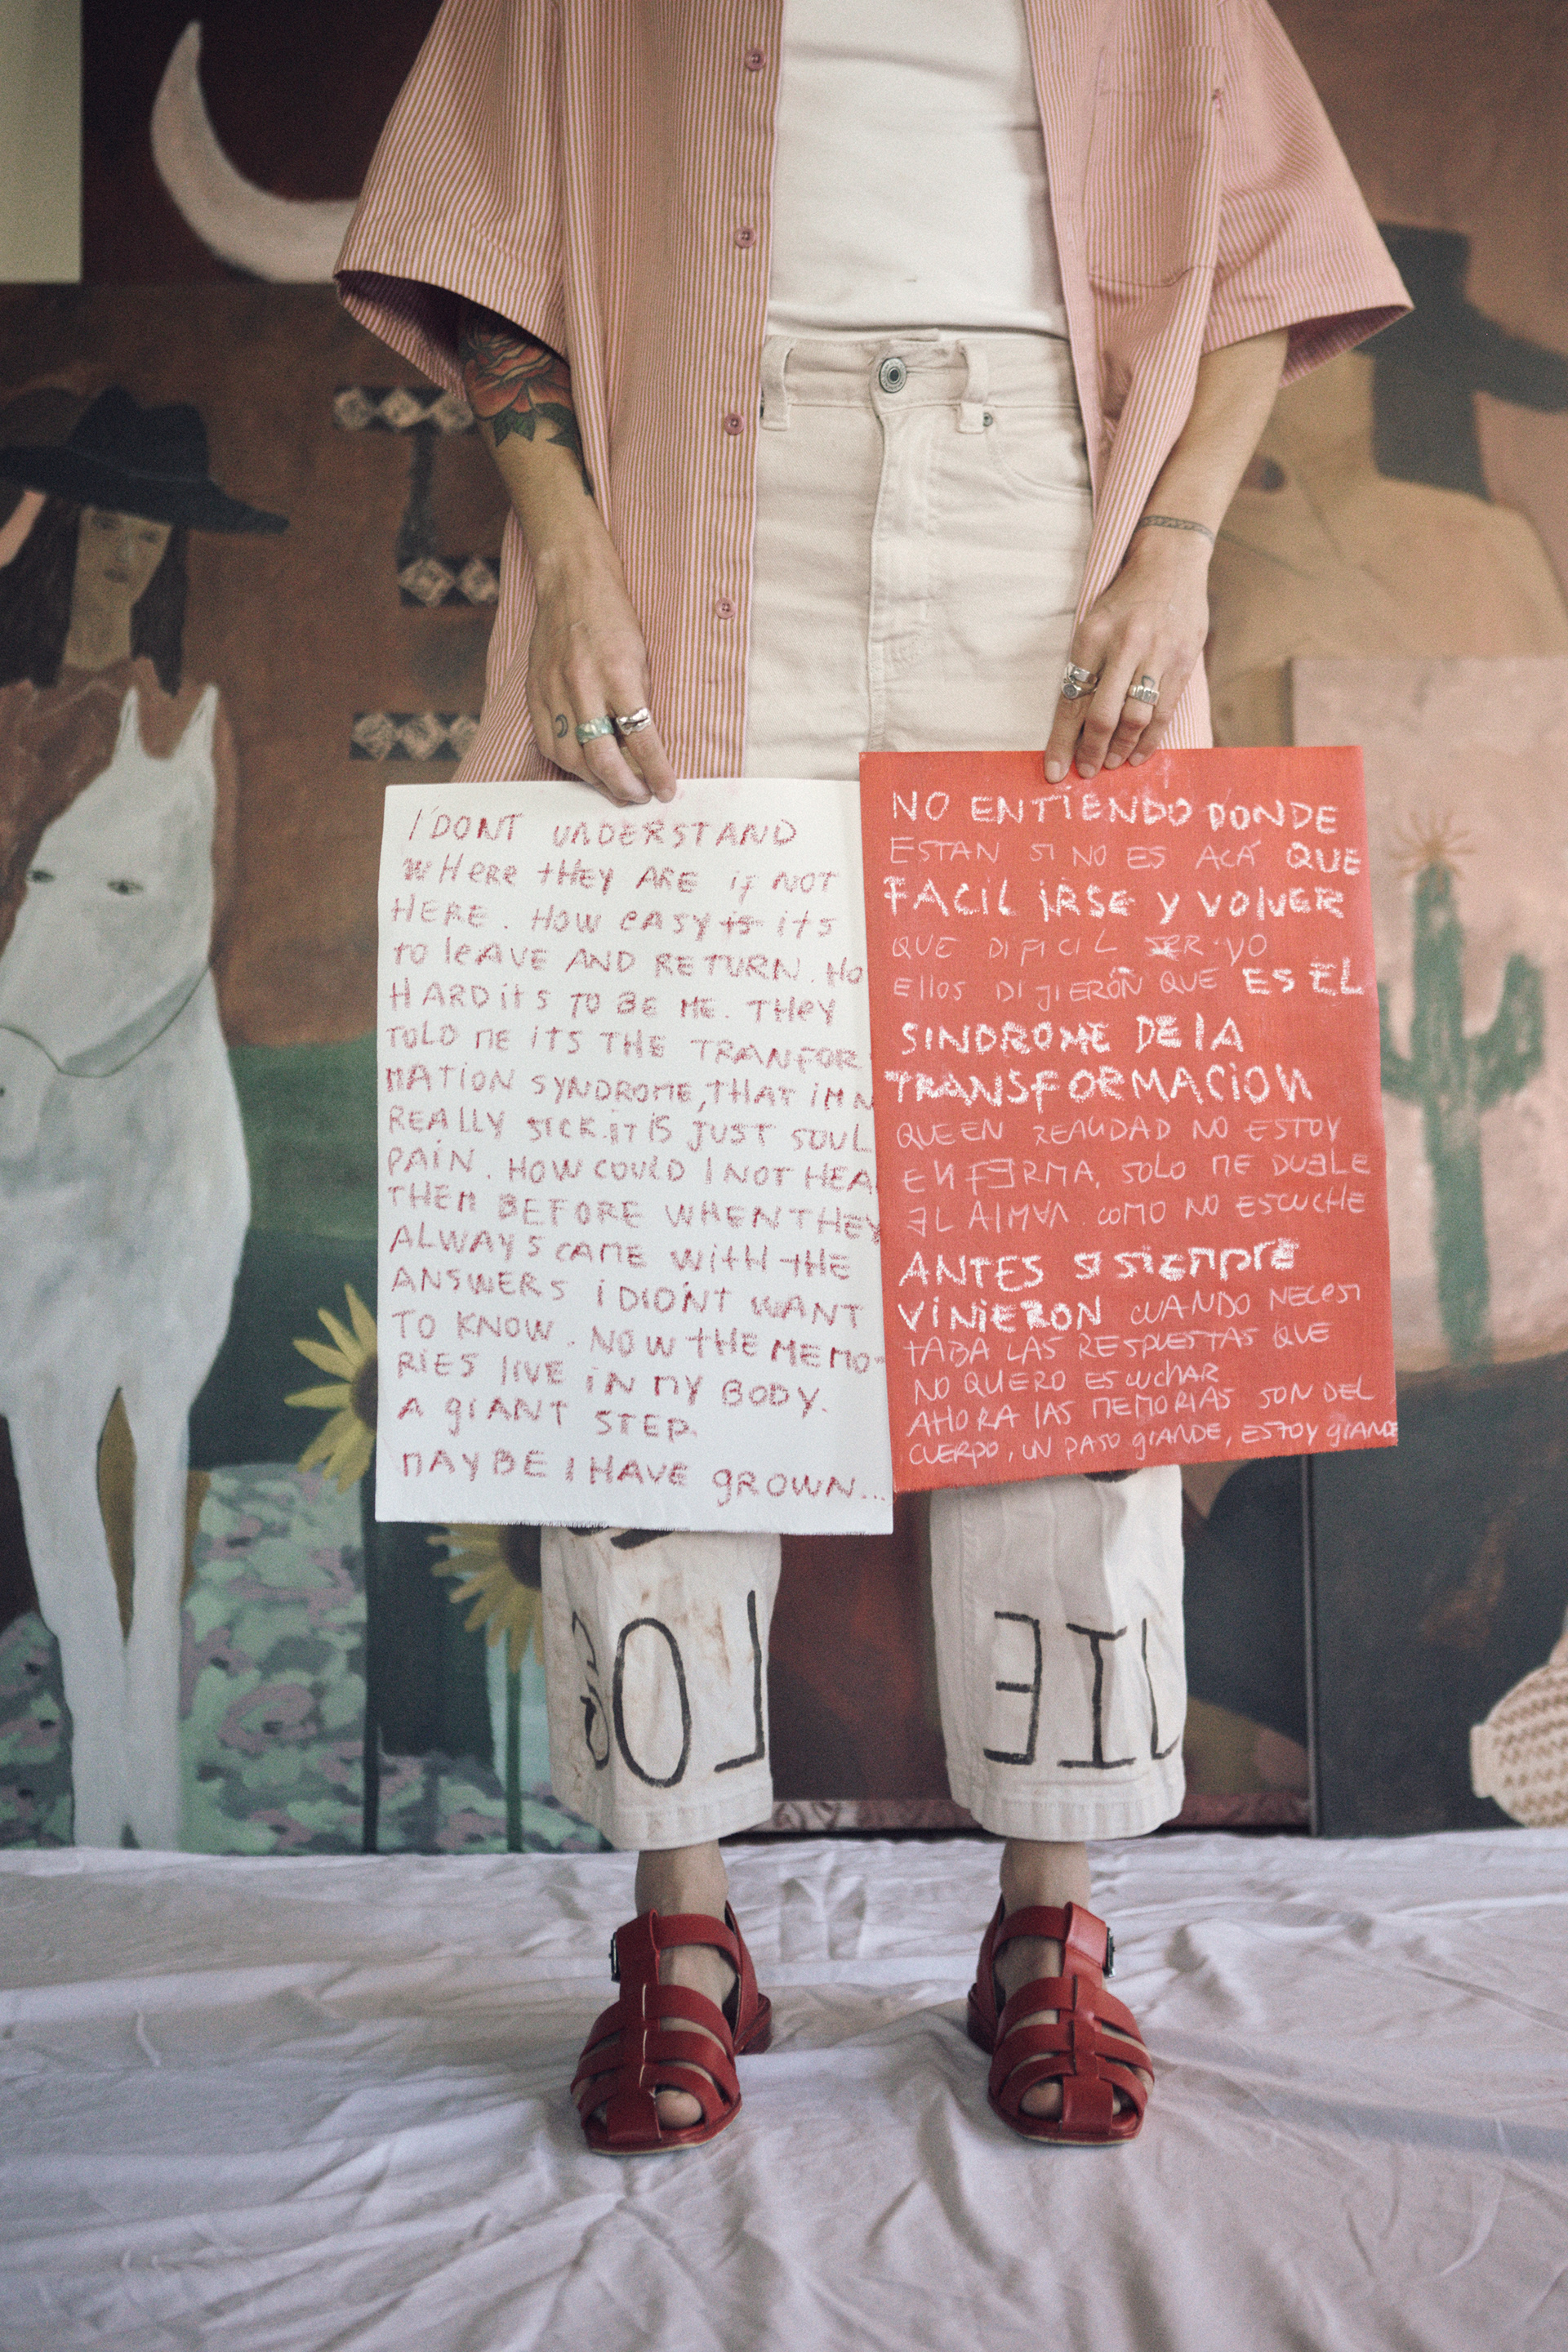 I DONT UNDERSTAND
WHERE THEY ARE IF NOT
HERE. HOW EASY is iTS
TO LEAVE AND RETURN. HO
HARD iTS TO BE ME. THEY
TOLD ME ITS THE TRANFOR
MATION SYNDROME, THAT iM N
REALLY SICK. iT IS JUST SOUL
PAIN. HOW COULD I NOT HEA
THEM BEFORE WHEN THEY
ALWAYS CAME WITH THE
ANSWERS i DiDN'T WANT
TO KNOW. NOW THE MEMO-
RIES LIVE IN MY BODY.
A GIANT STEP.
MAYBE I HAVE GROWN...
NO ENTiENDO DONDE
ESTAN SI NO ES ACÁ QUE
FACIL IRSE Y VOLVER
QUE DIFICIL SER YO
ELLOS DIJIERÓN QUE ES EL
SINDROME DE LA
TRANSFORMACION
QUE EN REALIDAD NO ESTOY
ENFERMA, SOLO ME DUELE
EL ALMA. COMO NO ESCUCHE
ANTES SI SIEMPRE
VINIERON CUANDO NECESI
TABA LAS RESPUESTAS QUE
NO QUERO ESCUCHAR
AHORA LAS MEMORIAS SON DEL
CUERPO, UN PASO GRANDE, ESTOY GRANDE